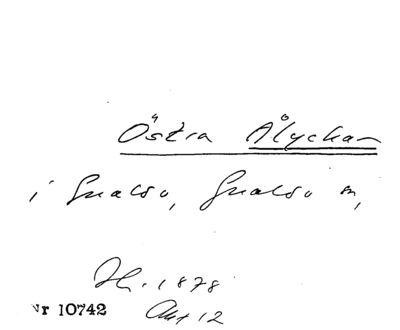 Östra Ålyckan
i Gualöv, Gualöv sn,
Hs. 1878
Nr 10742 Akt 12